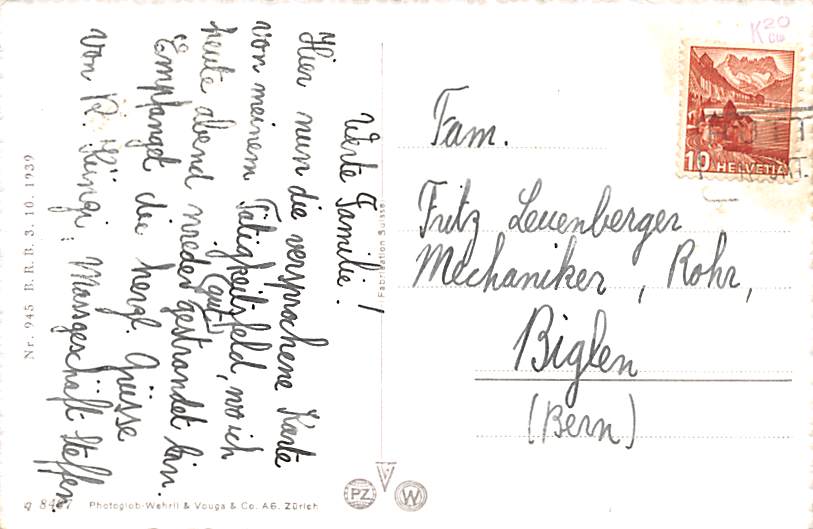 Werte Familie!
Hier nun die versprochene Karte
von meinem Tätigkeitsfeld, wo ich
heute abend wieder (gut) gestrandet bin.
Empfanget die herzl. Grüsse
von R. Massgeschäft Steffen.
Fam.
Fritz Leuenberger
Mechaniker, Rohr,
Biglen
(Bern)
K20
10 HELVETIA
Nr. 945 B. R. B. 3. 10. 1939
Fabrication Suisse
Photoglob-Wehrli & Vouga & Co. AG. Zürich
PZ W